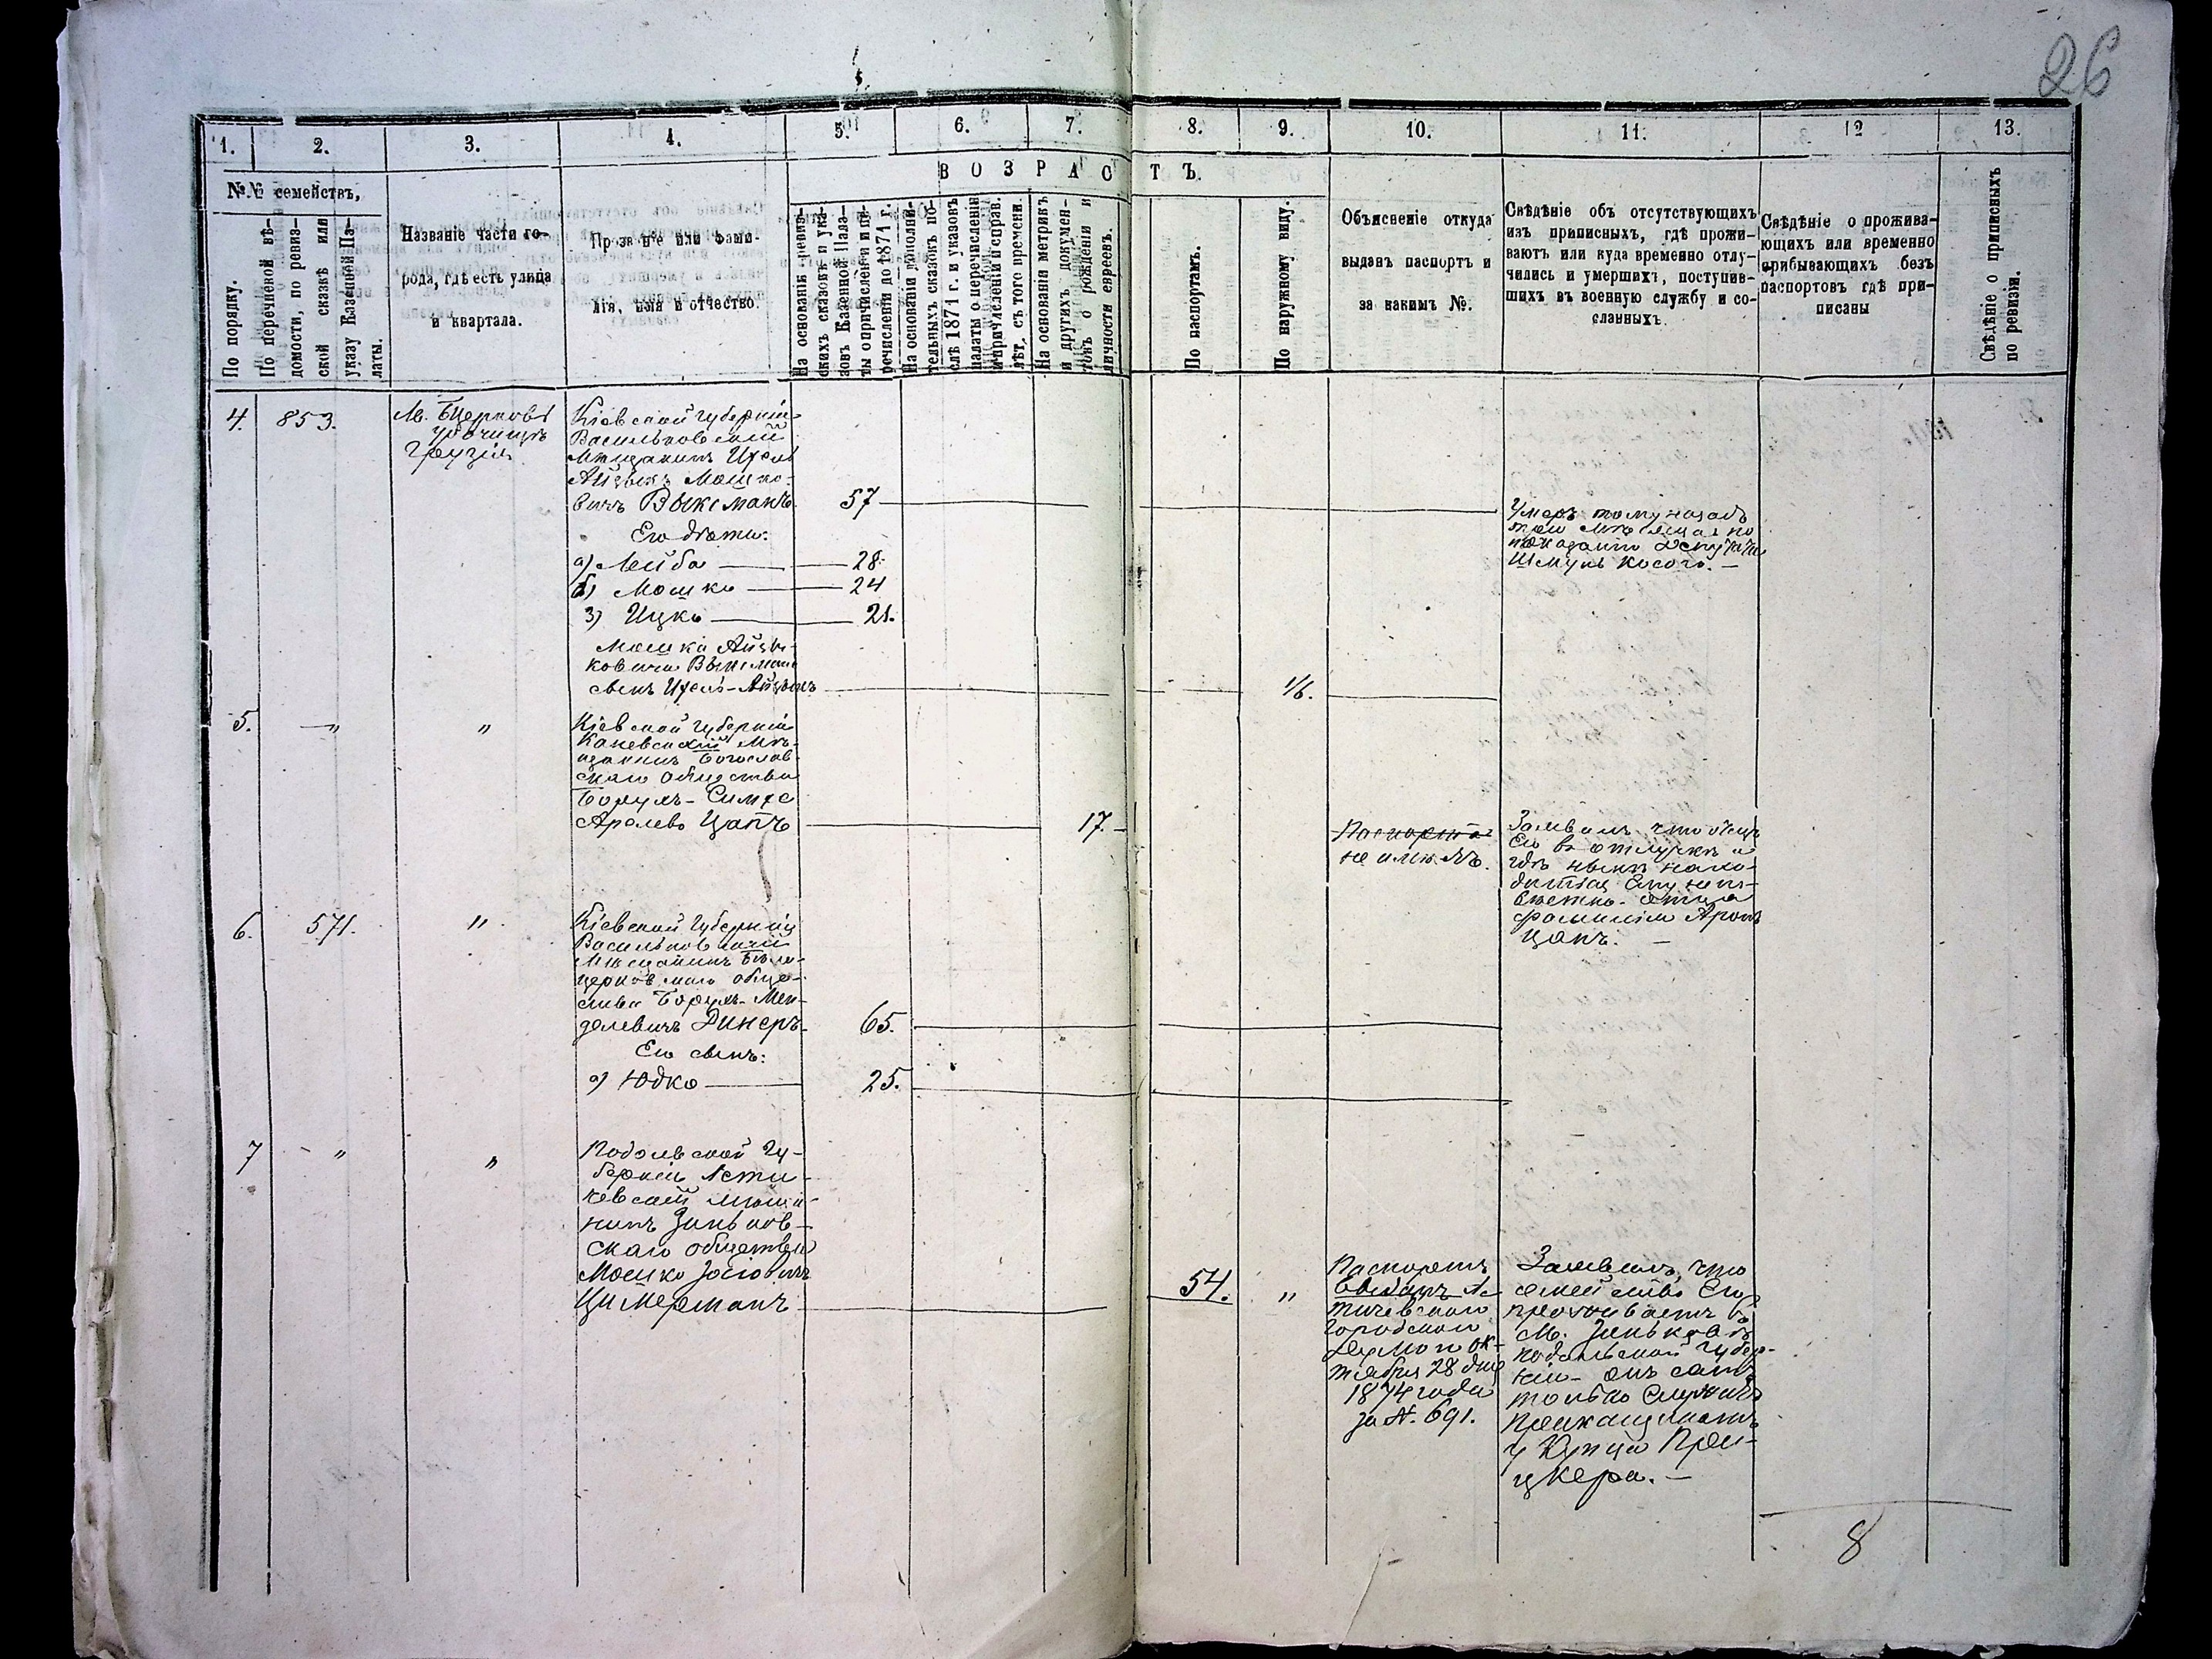 26
1.
2.
3.
4.
5.
6.
7.
8.
9.
10.
11.
12
13.
№№ семействъ,
ВОЗРАСТЪ.
По порядку.
По перечневой вѣ-
домости, по ревиз-
ской сказкѣ или
указу Казенной Па-
латы.
Названіе части го-
рода, гдѣ есть улица
и квартала.
Прозваніе или фами-
лія, имя и отчество.
На основаніи ревиз-
скихъ сказокъ и ука-
зовъ Казенной Пала-
ты о причисленіи и пе-
речисленіи до 1871 г.
На основаніи дополни-
тельныхъ сказокъ по-
слѣ 1871 г. и указовъ
палаты о перечисленіи
и причисленіи справ.
лѣт. съ того времени.
На основаніи метрикъ
и другихъ докумен-
товъ о рожденіи и
личности евреевъ.
По паспортамъ.
По наружному виду.
Объясненіе откуда
выданъ паспортъ и
за какимъ №.
Свѣдѣніе объ отсутствующихъ
изъ приписныхъ, гдѣ прожи-
ваютъ или куда временно отлу-
чились и умершихъ, поступив-
шихъ въ военную службу и со-
сланныхъ.
Свѣдѣніе о прожива-
ющихъ или временно
прибывающихъ безъ
паспортовъ гдѣ при-
писаны
Свѣдѣніе о приписныхъ
по ревизіи.
4.
853.
М. БЦерковь
урочище
Грузія
Кіевской губерніи
Васильковскій
Мѣщанинъ Ицель
Айзыкъ Мошко-
вичъ Выксманъ
57
Его дѣти:
а) Лейба
28.
б) Мошко
24
3) Ицко
21.
Мошка Айзы-
ковича Выксмана
сынъ Ицель-Айзыкъ
1/6.
Умеръ тому назадъ
три мѣсяца по
показанію Депутата
Шмуль Косого. –
5.
–"
"
Кіевской губерніи
Каневскій Мѣ-
щанинъ Богослав-
скаго общества
Борухъ-Симхе
Аролевъ Цапъ
17.
Паспорта
не имѣетъ.
Заявилъ что отецъ
Его въ отлучкѣ и
гдѣ нынѣ нахо-
дится Ему неиз-
вѣстно. отца
фамилія Аронъ
Цапъ. –
6.
571.
"
Кіевской Губерніи
Васильковскій
Мѣщанинъ Бѣло-
церковскаго обще-
ства Борухъ-Мен-
делевичъ Динеръ
65.
Его сынъ:
а) Юдко
25.
7
"
"
Подольской Гу-
берніи Лети-
чевскій мѣща-
нинъ Зиньков-
скаго общества
Мошко
Цимерманъ
54.
"
Паспортъ
выданъ Ле-
тичевскою
Городскою
Думою ок-
тября 28 дня
1874 года
за N. 691.
Заявилъ, что
семейство Его
проживаетъ въ
М. Зиньковѣ
подольской губер-
ніи - онъ самъ
только служитъ
прикащикомъ
у Купца При-
цкера. –
8